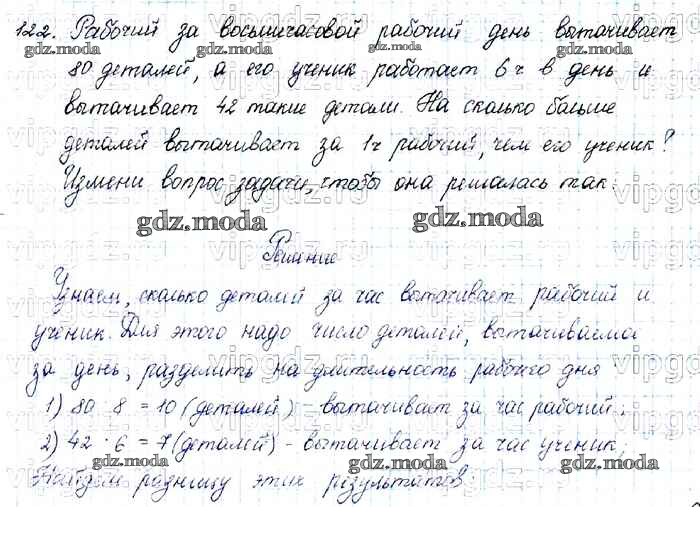 122. Рабочий за восьмичасовой рабочий день вытачивает
80 деталей, а его ученик работает 6 ч в день и
вытачивает 42 такие детали. На сколько больше
деталей вытачивает за 1 ч рабочий, чем его ученик?
Измени вопрос задачи, чтобы она решалась так:
gdz.moda gdz.moda
Решение
Узнаем, сколько деталей за час вытачивает рабочий и
ученик. Для этого надо число деталей, вытачиваемое
за день, разделить на длительность рабочего дня
1) 80 : 8 = 10 (деталей) - вытачивает за час рабочий;
2) 42 : 6 = 7 (деталей) - вытачивает за час ученик;
gdz.moda gdz.moda
Найдем разницу этих результатов: